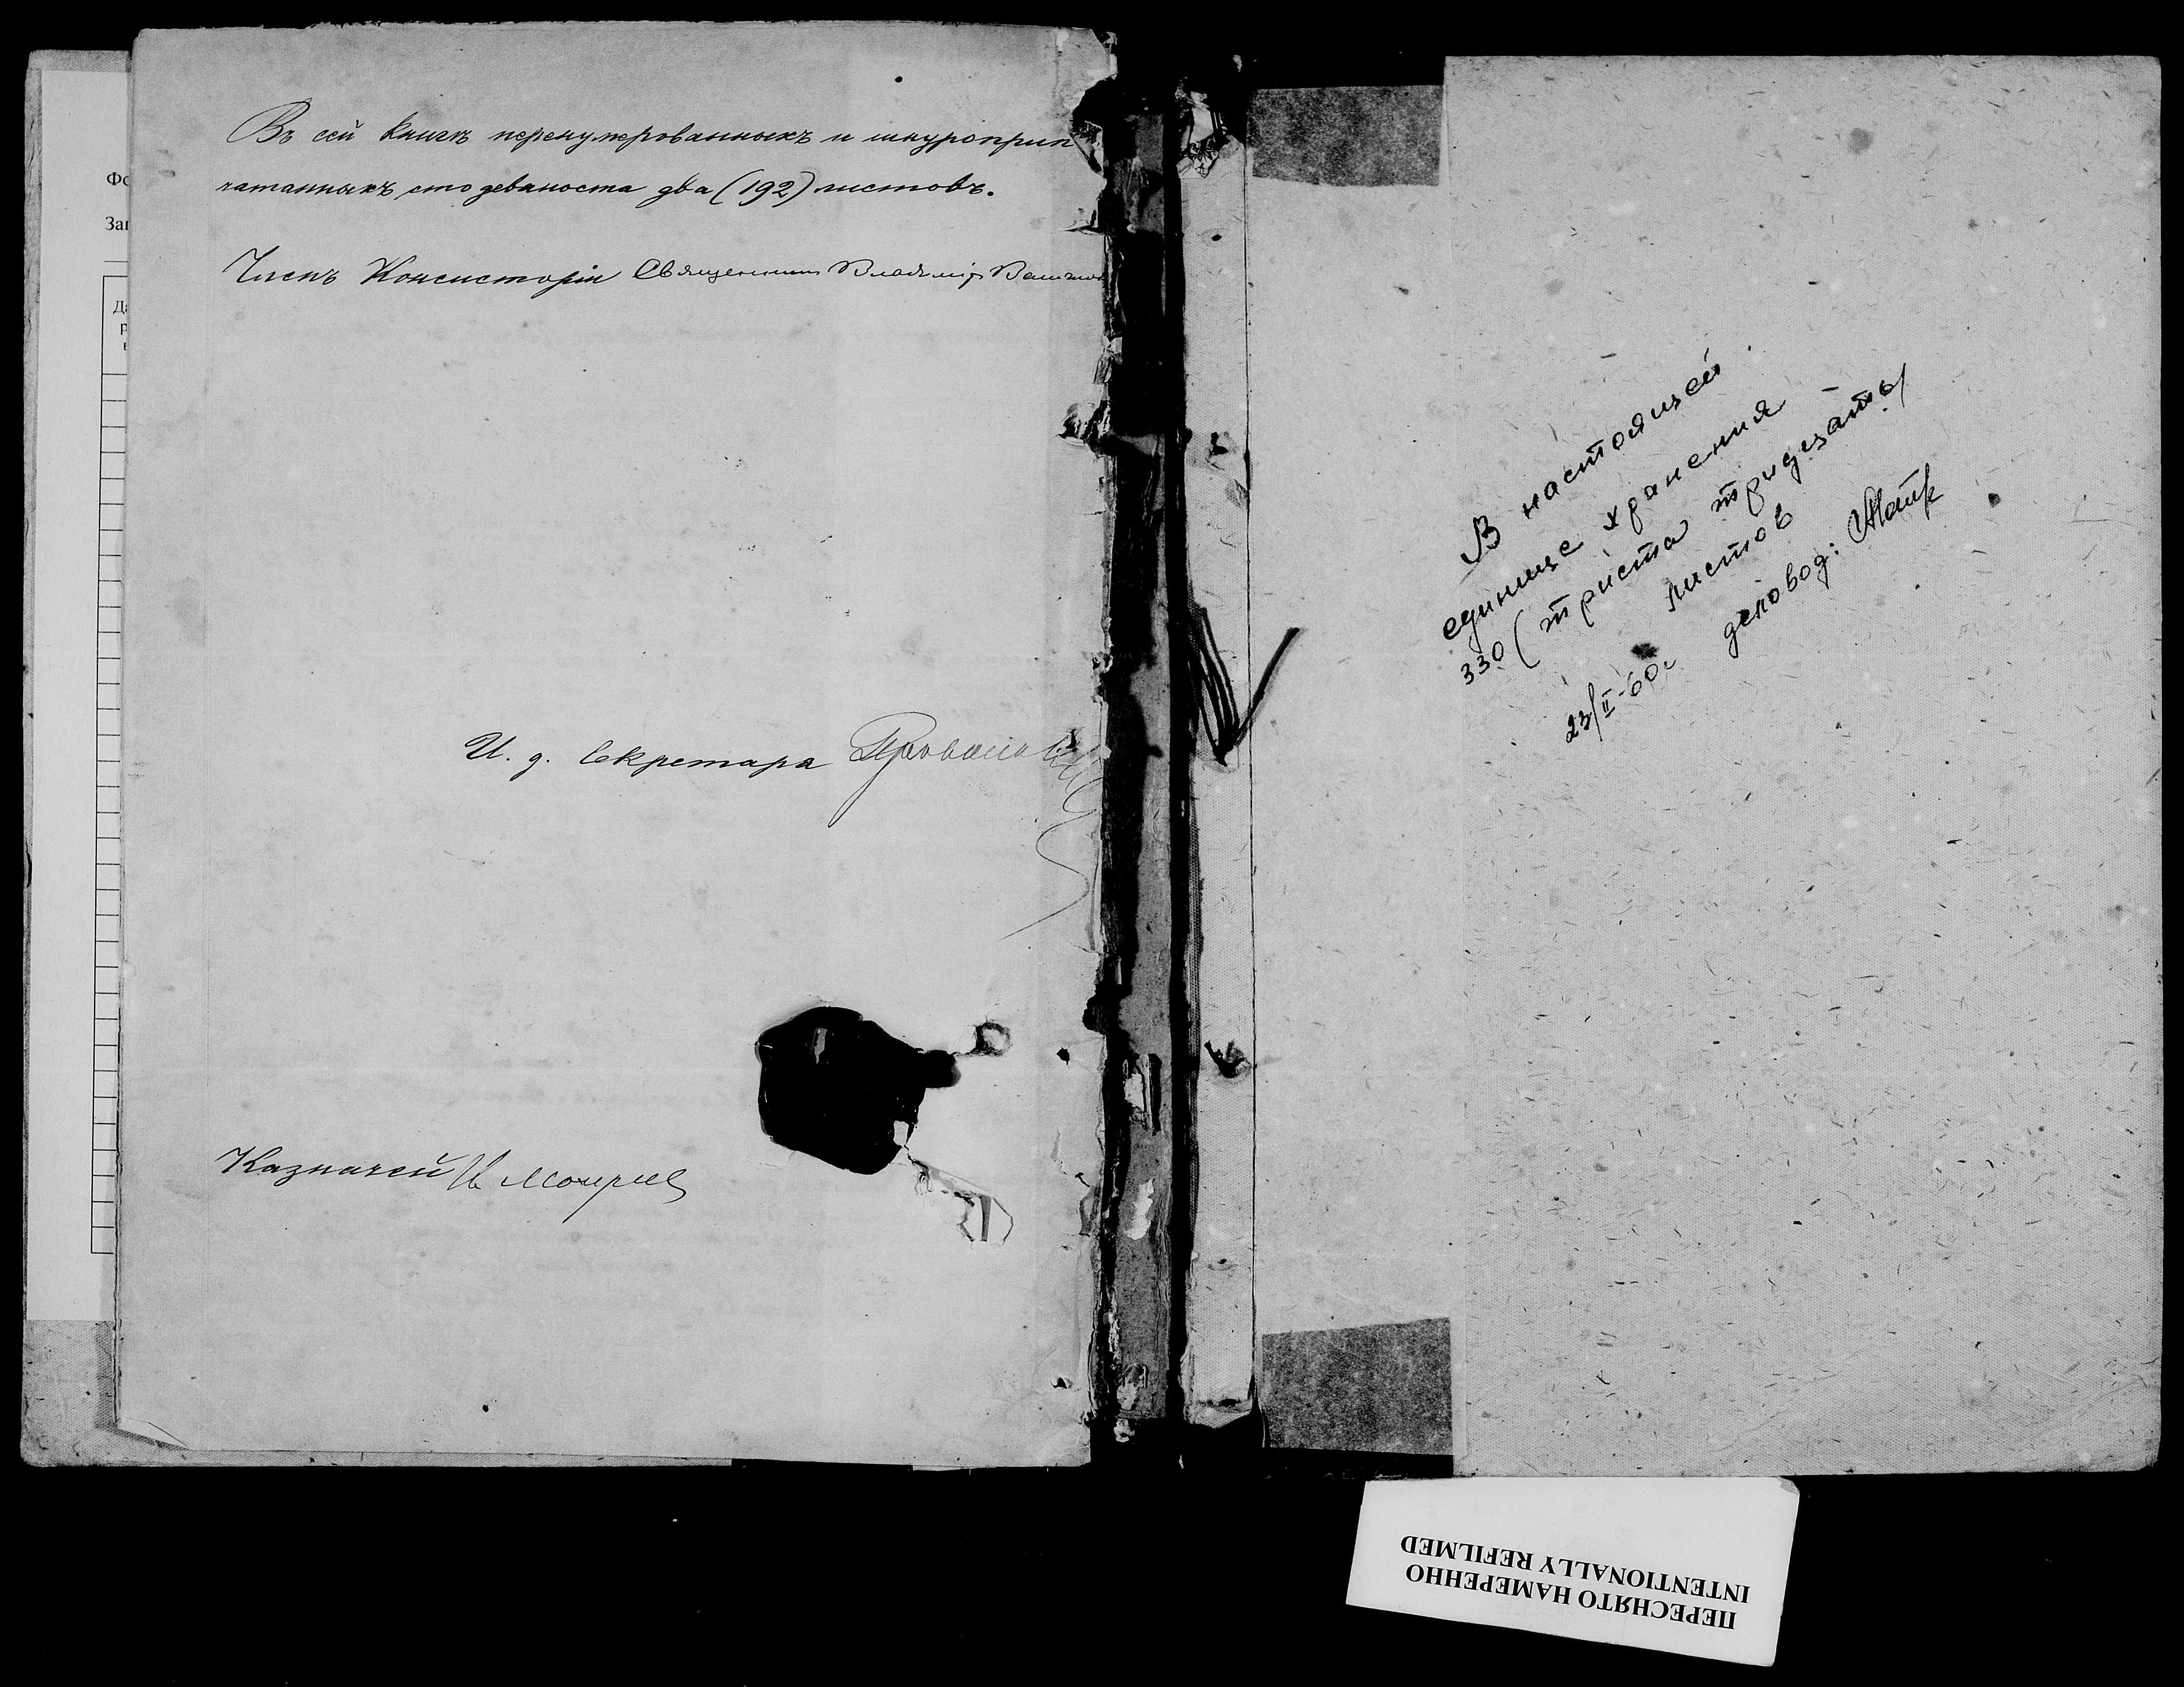 Въ сей книгѣ перенумерованныхъ и шнуроприп
чатанныхъ сто девяноста два (192) листовъ.
Членъ Консисторіи Священникъ Владиміръ
И. д. Секретаря
Казначей
Фо
Заг
В настоящей
единице хранения
330 (триста тридцать)
листов
23/II-60г деловод:
ПЕРЕСНЯТО НАМЕРЕННО
INTENTIONALLY REFILMED